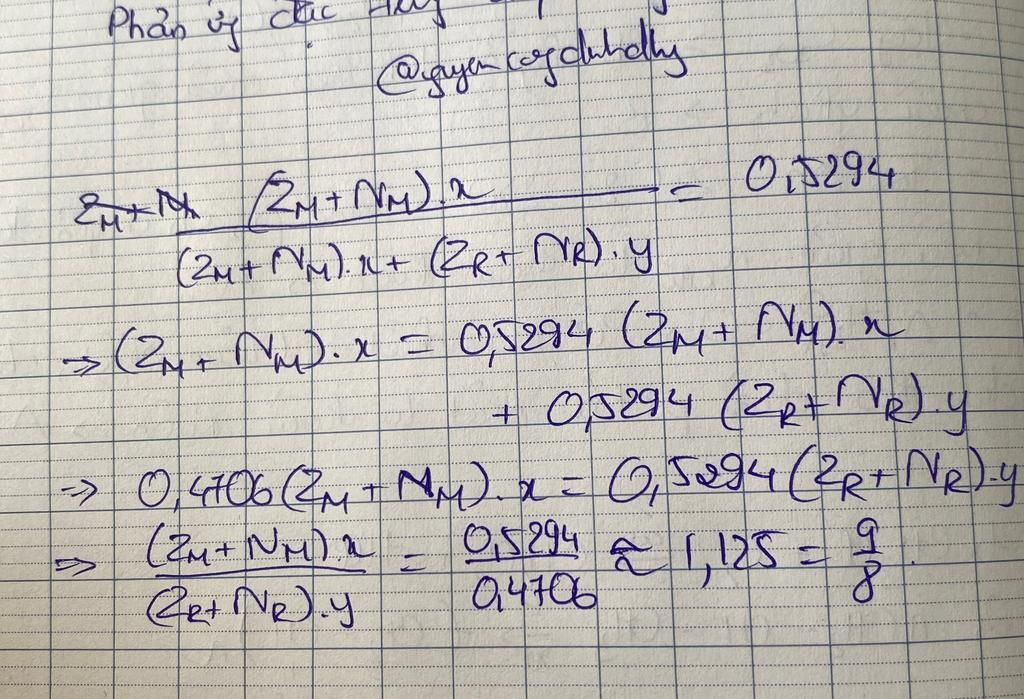 Phản ứ
@nguyen
Z_M + N (Z_M + N_M).x / (Z_M + N_M).x + (Z_R + N_R).y = 0,5294
⇒ (Z_M + N_M).x = 0,5294 (Z_M + N_M).x
+ 0,5294 (Z_R + N_R).y
⇒ 0,4706 (Z_M + N_M).x = 0,5294 (Z_R + N_R).y
⇒ (Z_M + N_M) x / (Z_R + N_R).y = 0,5294 / 0,4706 ≈ 1,125 = 9/8.